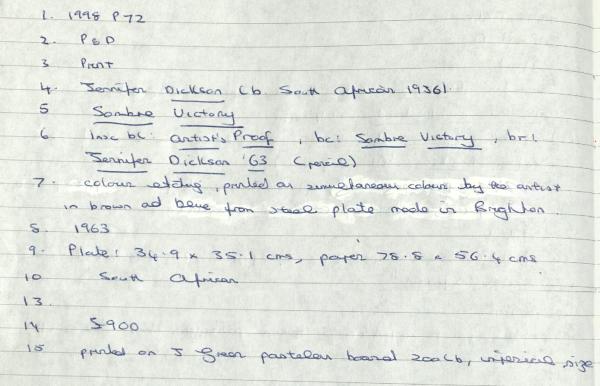 1. 1998 P72
2. P&D
3 Print
4. Jennifer Dickson (b South African 1936)
5 Sombre Victory
6 Insc bl: artist's Proof, bc: Sombre Victory, br:
Jennifer Dickson '63 (pencil)
7. colour etching, printed as simultaneous colour by the artist
in brown ad blue from steel plate made in Brighton.
8. 1963
9. Plate: 34.9 x 35.1 cms, paper 78.8 x 56.4 cms
10 South African
13.
14 S900
15 printed on J Green board 200lb, imperial size